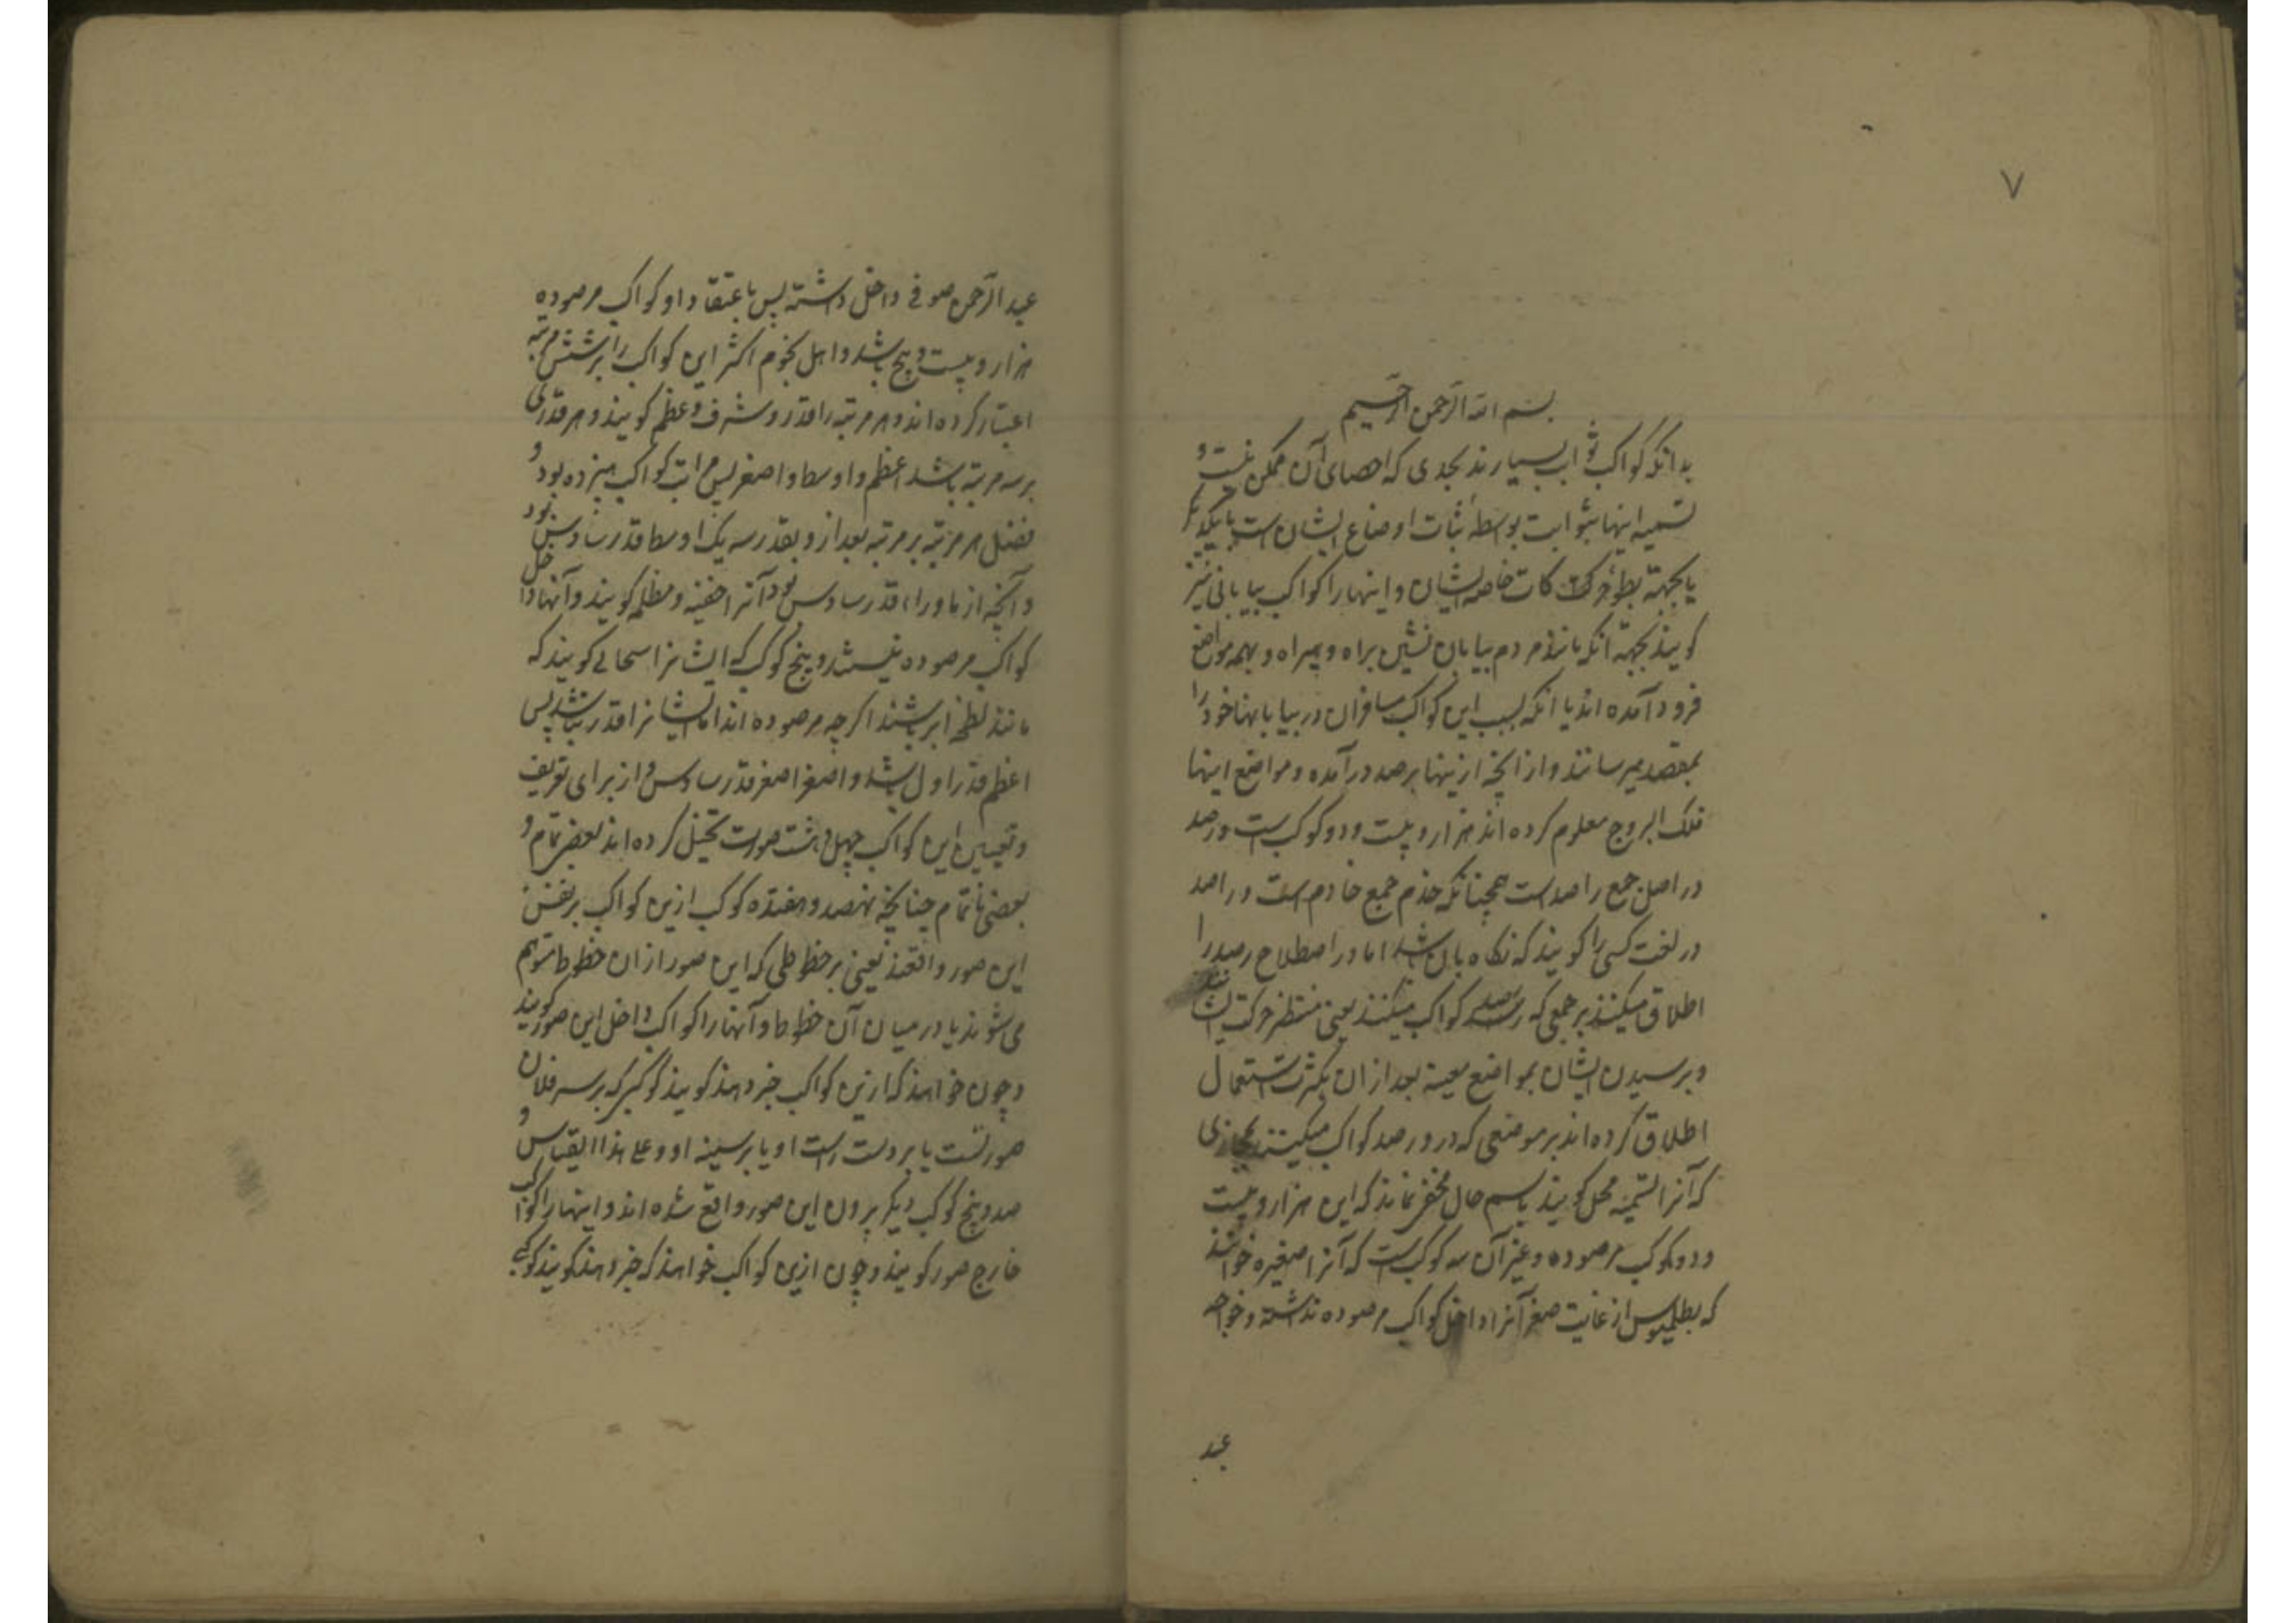 ۷
بسم الله الرحمن الرحیم
بدانکه کواکب ثوابت بسیارند بحدی که احصای آن ممکن نیست و
تسمیه اینها بثوابت بواسطه ثبات اوضاع ایشان است بایکدیگر
یا بجهة بطوء حرکات خاصه ایشان و اینها را کواکب بیابانی نیز
کویند بجهة آنکه مانند مردم بیابان نشین براه و بیراه و بهمه مواضع
فرود آمده اند یا آنکه بسبب این کواکب مسافران در بیابانها خود را
بمقصد میرسانند و از آنچه ازینها برصد درآمده و مواضع اینها
فلک البروج معلوم کرده اند هزار و بیست و دو کوکب است و رصد
در اصل جمع راصد است همچنانکه خدم جمع خادم است و راصد
در لغت کسی را کویند که نکاه بان باشد اما در اصطلاح رصد را
اطلاق میکنند بر جمعی که رصد کواکب میکنند یعنی منتظر حرکت ایشانند
و برسیدن ایشان بمواضع معینه بعد از ان بکثرت استعمال
اطلاق کرده اند بر موضعی که درو رصد کواکب میکنند مجازی
که آنرا تسمیه محل کویند باسم حال مخفی نماند که این هزار و بیست
و دو کوکب مرصوده و غیر آن سه کوکب است که آنرا صغیره خوانند
که بطلمیوس از غایت صغر آنرا داخل کواکب مرصوده نداشته و خواجه
عبد
عبد الرحمن صوفی داخل داشته پس باعتقاد او کواکب مرصوده
هزار و بیست و پنج باشد و اهل نجوم اکثر این کواکب را بر شش مرتبه
اعتبار کرده اند و هر مرتبه را قدر و شرف و عظم کویند و هر قدری
بر سه مرتبه باشد اعظم و اوسط و اصغر پس مراتب کواکب هیزده بود و
فضل هر مرتبه بر مرتبه بعد ازو بقدر سه یک اوسط قدر سادس بود
و آنچه از ماوراء قدر سادس بود آنرا خفیه و مظلمه کویند و آنها داخل
کواکب مرصوده نیستند و پنج کوکب که ایشانرا سحابی کویند که
مانند لطخه ابر باشند اکرچه مرصوده اند اما ایشانرا قدر نباشد پس
اعظم قدر اول باشد و اصغر اصغر قدر سادس و از برای تعریف
و تعیین این کواکب چهل و هشت صورت تخیل کرده اند بعضی تمام و
بعضی ناتمام چنانچه نهصد و هفتده کوکب ازین کواکب بر نفس
این صور واقعند یعنی بر خطوطی که این صور از ان خطوط متوهم
می شوند یا در میان آن خطوط و آنها را کواکب داخل این صور کویند
و چون خواهند که ازین کواکب خبر دهند کویند کوکبی که بر سر فلان
صورتست یا بر دست راست او یا بر سینه او و علی هذا القیاس و
صد و پنج کوکب دیکر بیرون این صور واقع شده اند و اینها را کواکب
خارج صور کویند و چون ازین کواکب خواهند که خبر دهند کویند کوکبی